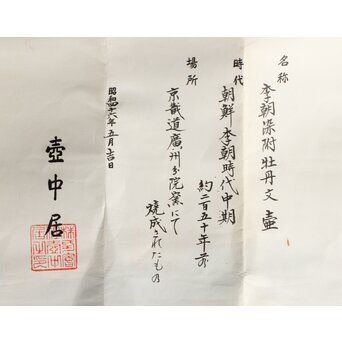 名称
李朝染附牡丹文 壷
時代
朝鮮 李朝時代中期
約二百五十年前
場所
京畿道廣州分院窯にて
焼成されたもの
昭和四十六年 五月吉日
壺中居